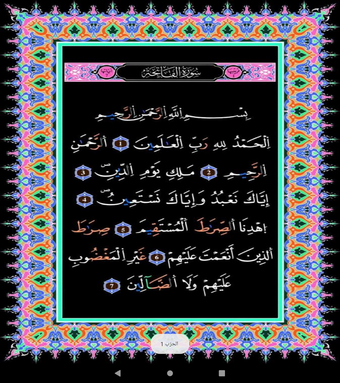 سُورَةُ الْفَاتِحَةِ
بِسْمِ اِللَّهِ اِلرَّحْمَٰنِ اِلرَّحِيمِ
اِلْحَمْدُ لِلهِ رَبِّ اِلْعَٰلَمِينَ 1 اَلرَّحْمَٰنِ
اِلرَّحِيمِ 2 مَلِكِ يَوْمِ اِلدِّينِ 3
إِيَّاكَ نَعْبُدُ وَإِيَّاكَ نَسْتَعِينُ 4
اِهْدِنَا اَلصِّرَٰطَ اَلْمُسْتَقِيمَ 5 صِرَٰطَ
اَلذِينَ أَنْعَمْتَ عَلَيْهِمْ 6 غَيْرِ اِلْمَغْضُوبِ
عَلَيْهِمْ وَلَا اَلضَّآلِّينَ 7
الحزب 1